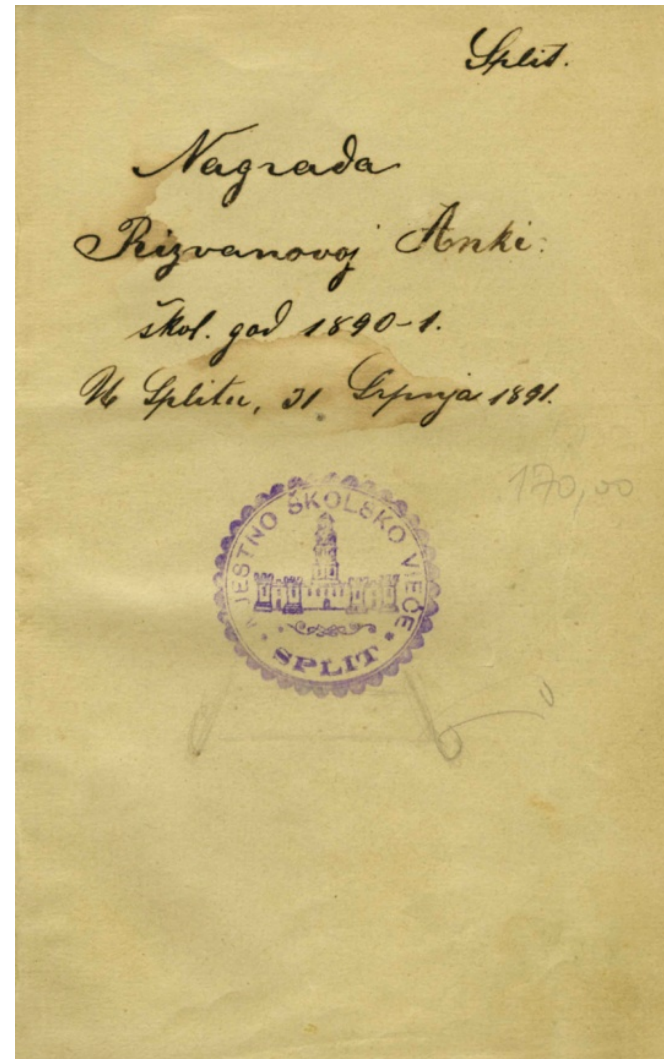 Split.
Nagrada
Rizvanovoj Anki.
škol. god 1890-1.
U Splitu, 31 Srpnja 1891.
170,00
MJESTNO ŠKOLSKO VIEĆE
SPLIT